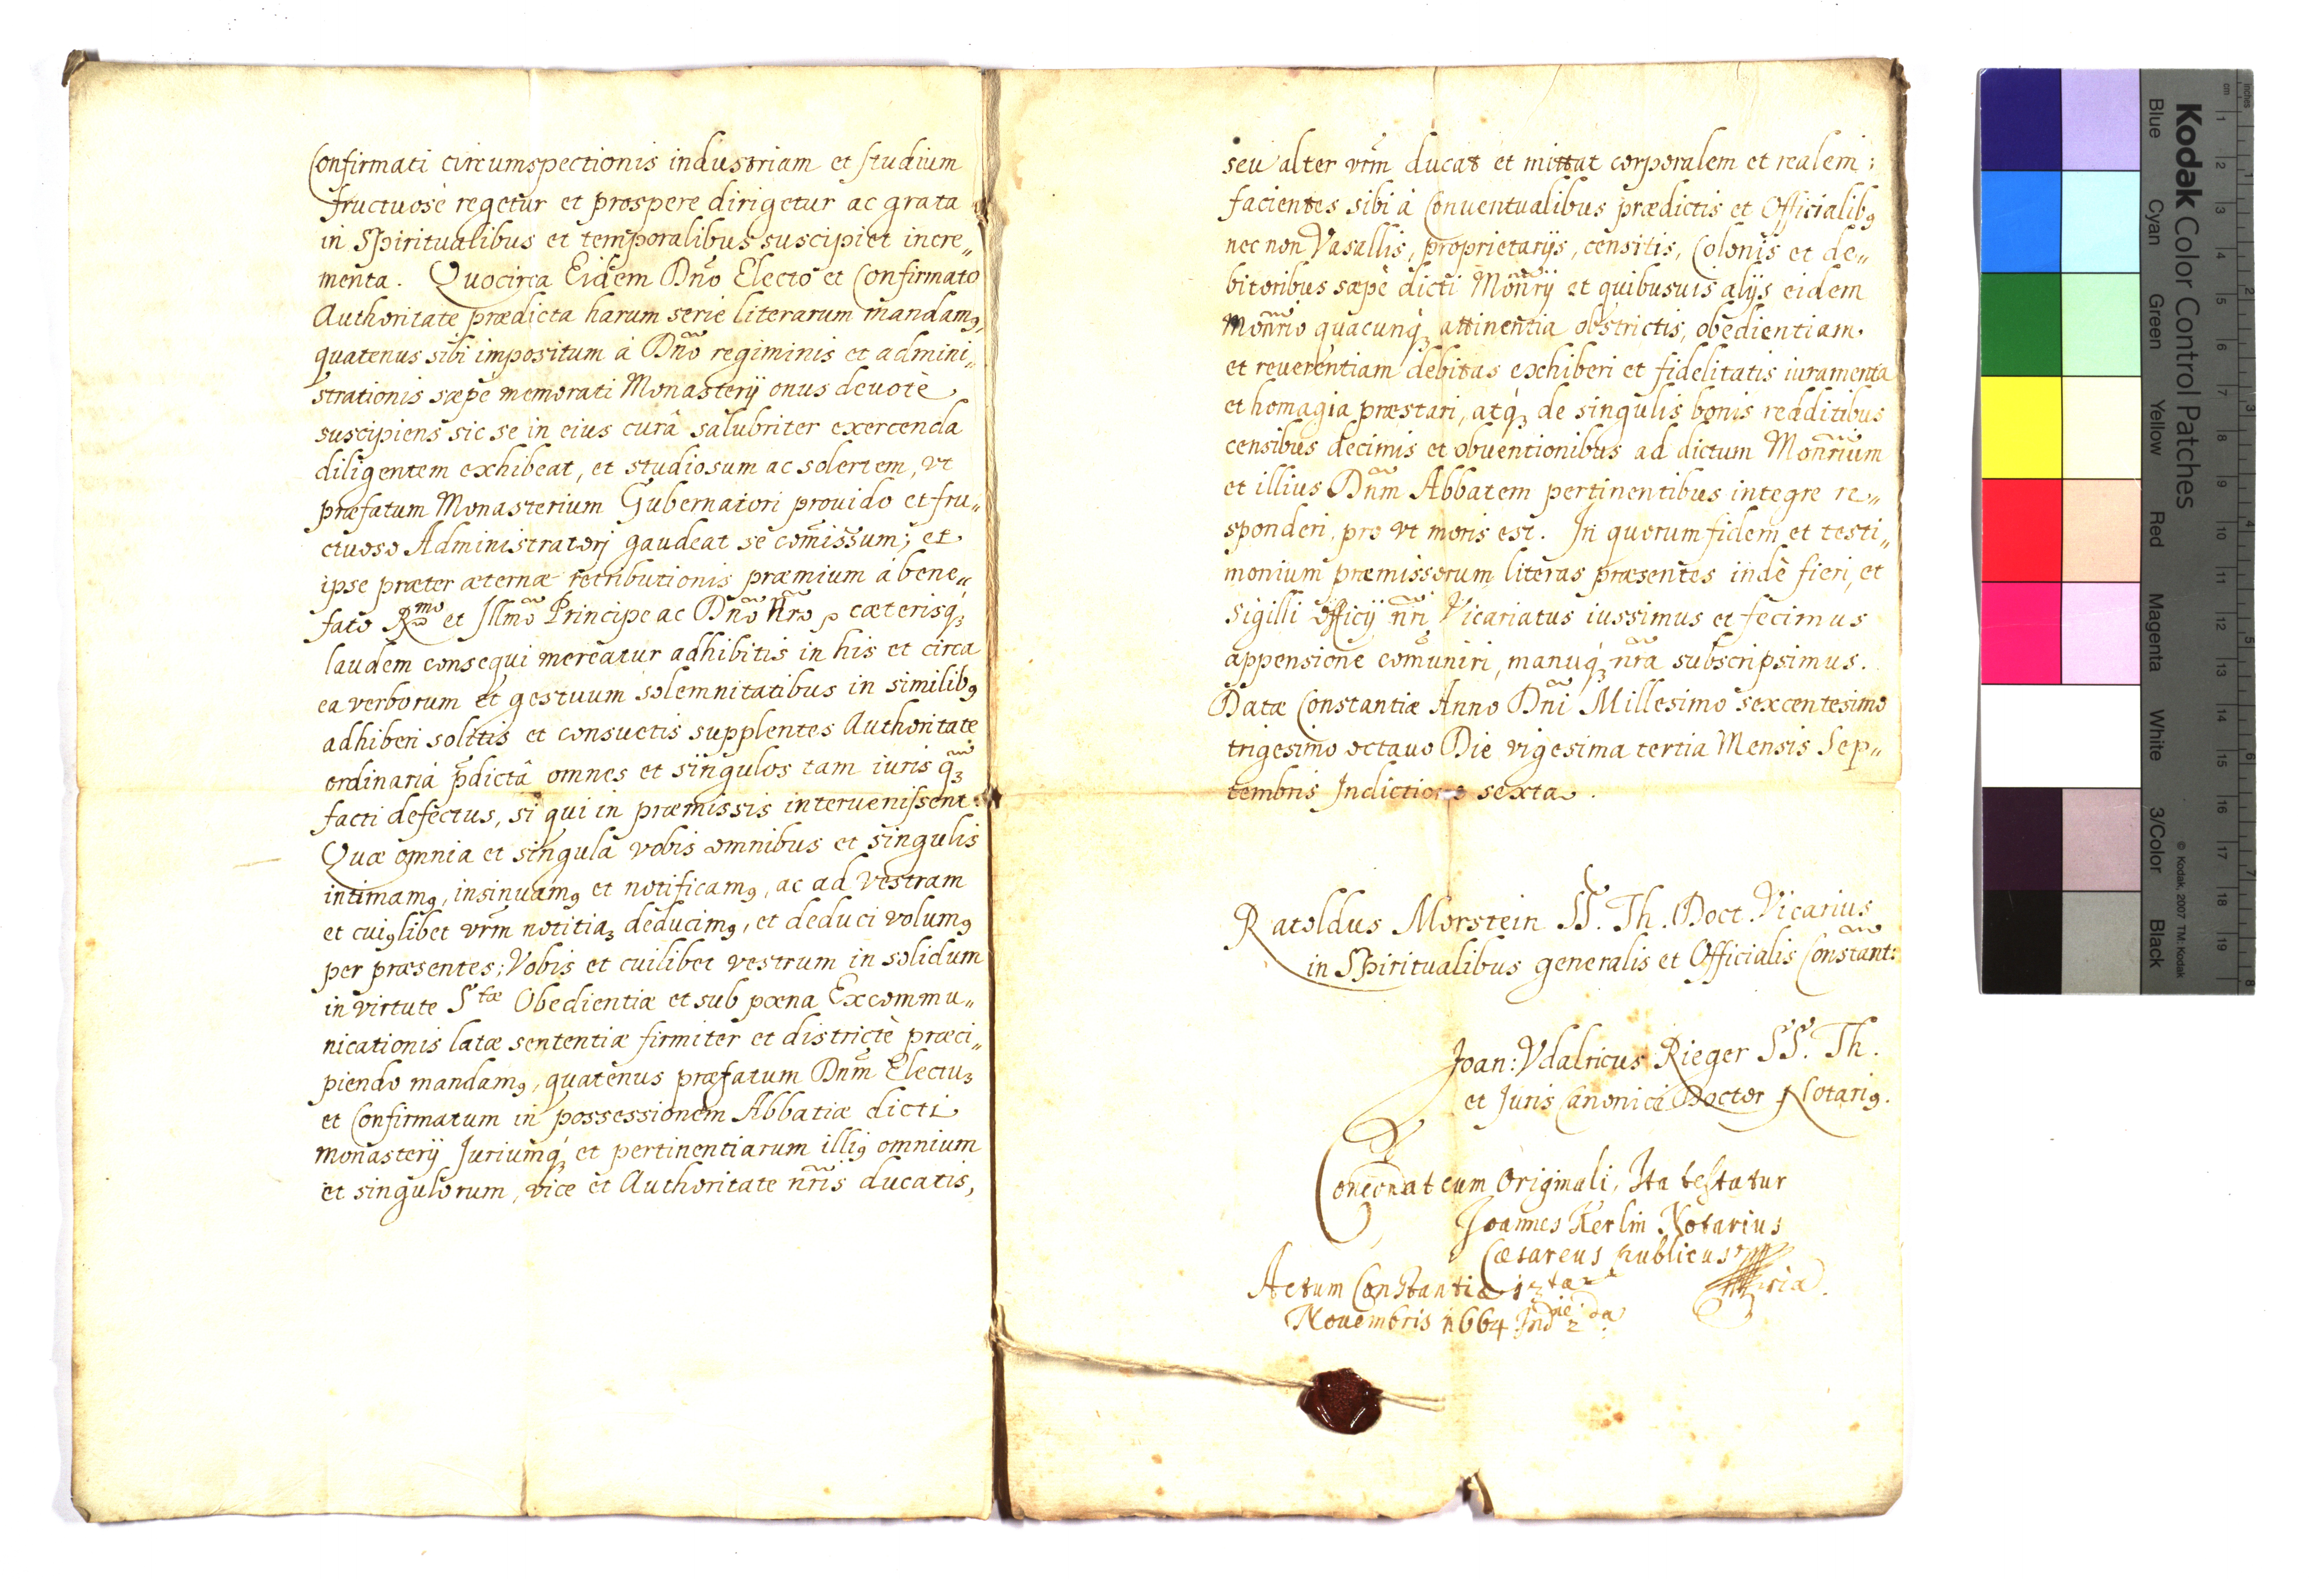 Confirmati circumspectionis industriam et studium
fructuosè regetur et prospere dirigetur ac grata
in Spiritualibus et temporalibus suscipiet incre„
menta. Quocirca Eidem Dño Electo et Confirmato
Authoritate prædicta harum serie literarum mandamꝰ,
quatenus sibi impositum à Dño regiminis et admini„
strationis sæpè memorati Monasterij onus deuotè
suscipiens sic se in eius curâ salubriter exercenda
diligentem exhibeat, et studiosum ac solertem, vt
præfatum Monasterium Gubernatori prouido et fru„
ctuoso Administratorj gaudeat se com̃issum; et
ipse præter æternæ retributionis præmium à bene„
fato Rmo et Illmo Principe ac Dño ñro, cæterisq́ꝫ
laudem consequi mereatur adhibitis in his et circa
ea verborum et gestuum solemnitatibus in similibꝰ
adhiberi solitis et consuetis supplentes Authoritate
ordinariâ p̃dictâ omnes et singulos tam iuris q̃ꝫ
facti defectus, si qui in præmissis interuenissent.
Quæ omnia et singula vobis omnibus et singulis
intimamꝰ, insinuamꝰ et notificamꝰ, ac ad vestram
et cuiꝰlibet vr̃m notitiaꝫ deducimꝰ, et deduci volumꝰ
per præsentes; Vobis et cuilibet vestrum in solidum
in virtute Stæ Obedientiæ et sub pœna Excommu„
nicationis latæ sententiæ firmiter et districtè præci„
piendo mandamꝰ, quatenus præfatum Dñm Electuꝫ
et Confirmatum in possessionem Abbatiæ dicti
monasterij Juriumq́ꝫ et pertinentiarum illiꝰ omnium
et singulorum, vice et Authoritate ñris ducatis,
seu alter vr̃m ducat et mittat corporalem et realem;
facientes sibi à Conuentualibus prædictis et Officialibꝰ
nec non Vasallis, proprietarijs, censitis, Colonis et de„
bitoribus sæpè dicti Moñrij et quibusuis alijs eidem
Moñrio quacunq́ꝫ attinentia obstrictis, obedientiam
et reuerentiam debitas exhiberi et fidelitatis iuramenta
et homagia præstari, atq́ꝫ de singulis bonis redditibus
censibus decimis et obuentionibus ad dictum Moñrium
et illius Dñm Abbatem pertinentibus integre re„
sponderi, pro vt moris est. In quorum fidem et testi„
monium præmissorum literas præsentes indè fieri, et
sigilli officij ñri Vicariatus iussimus et fecimus
appensione com̃uniri, manuq́ꝫ ñra subscripsimus.
Datæ Constantiæ Anno Dñi Millesimo sexcentesimo
trigesimo octauo Die vigesima tertia Mensis Sep„
tembris Indictione sexta.
Ratoldus Morstein SS. Th. Doct. Vicarius
in Spiritualibus generalis et Officialis Constant:
Joan: Vdalricus Rieger SS. Th.
et Juris Canonici Doctor Notariꝰ.
Concordat cum Originali, Ita testatur
Joannes Kerlin Notarius
Cæsareus publicus
Actum Constantiæ
Nouembris 1664 Indie 2da
Kodak Color Control Patches
Blue
Cyan
Green
Yellow
Red
Magenta
White
3/Color
Black
© Kodak, 2007 TM: Kodak
cm 1 2 3 4 5 6 7 8 9 10 11 12 13 14 15 16 17 18 19
inches 1 2 3 4 5 6 7 8